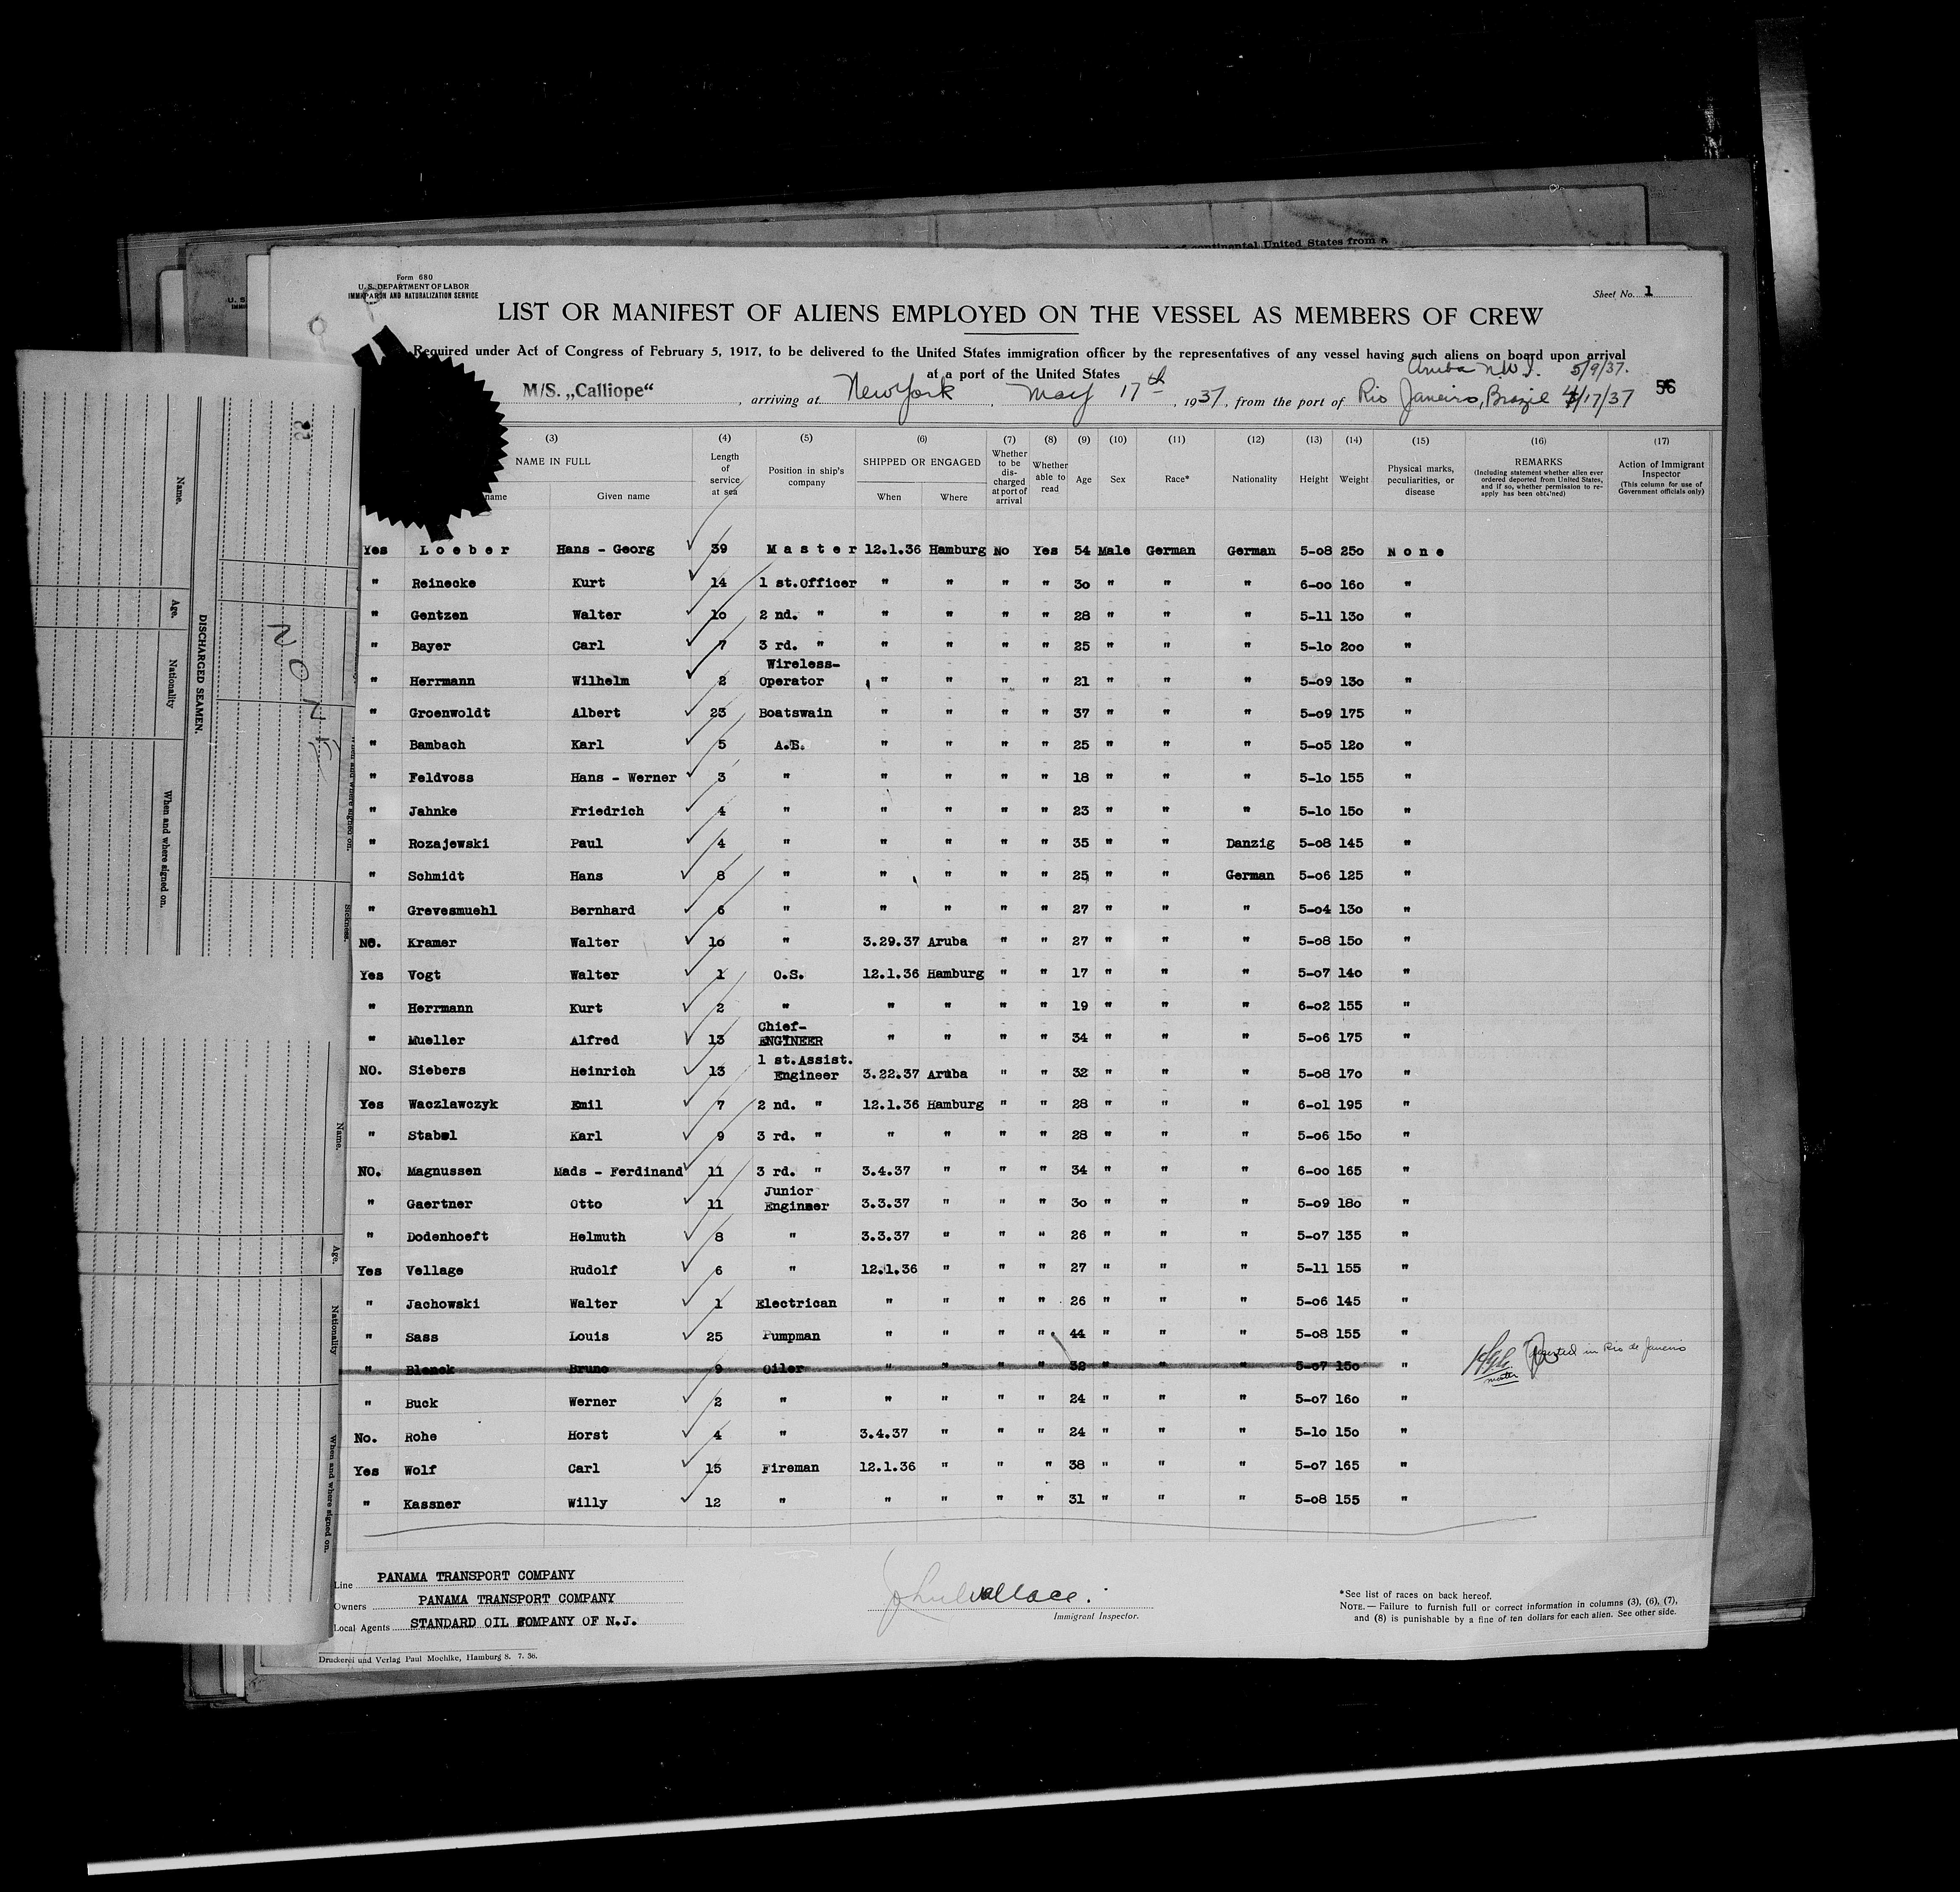 continental United States from a
Form 680
U. S. DEPARTMENT OF LABOR
IMMIGRATION AND NATURALIZATION SERVICE
Sheet No. 1
LIST OR MANIFEST OF ALIENS EMPLOYED ON THE VESSEL AS MEMBERS OF CREW
Required under Act of Congress of February 5, 1917, to be delivered to the United States immigration officer by the representatives of any vessel having such aliens on board upon arrival
at a port of the United States
Aruba N.W.I. 5/9/37.
M/S. „Calliope“, arriving at New York, May 17th, 1937, from the port of Rio Janeiro, Brazil 4/17/37 56
(3) (4) (5) (6) (7) (8) (9) (10) (11) (12) (13) (14) (15) (16) (17)
NAME IN FULL
name Given name
Length of service at sea
Position in ship's company
SHIPPED OR ENGAGED
When Where
Whether to be discharged at port of arrival
Whether able to read
Age
Sex
Race*
Nationality
Height
Weight
Physical marks, peculiarities, or disease
REMARKS
(Including statement whether alien ever ordered deported from United States, and if so, whether permission to re-apply has been obtained)
Action of Immigrant Inspector
(This column for use of Government officials only)
Yes Loeber Hans - Georg 39 Master 12.1.36 Hamburg No Yes 54 Male German German 5-08 25o None
" Reinecke Kurt 14 1 st.Officer " " " " 3o " " " 6-oo 16o "
" Gentzen Walter 1o 2 nd. " " " " " 28 " " " 5-11 13o "
" Bayer Carl 7 3 rd. " " " " " 25 " " " 5-1o 2oo "
" Herrmann Wilhelm 2 Wireless-Operator " " " " 21 " " " 5-o9 13o "
" Groenwoldt Albert 23 Boatswain " " " " 37 " " " 5-o9 175 "
" Bambach Karl 5 A.B. " " " " 25 " " " 5-o5 12o "
" Feldvoss Hans - Werner 3 " " " " " 18 " " " 5-1o 155 "
" Jahnke Friedrich 4 " " " " " 23 " " " 5-1o 15o "
" Rozajewski Paul 4 " " " " " 35 " " Danzig 5-o8 145 "
" Schmidt Hans 8 " " " " " 25 " " German 5-o6 125 "
" Grevesmuehl Bernhard 6 " " " " " 27 " " " 5-o4 13o "
NO. Kramer Walter 1o " 3.29.37 Aruba " " 27 " " " 5-o8 15o "
Yes Vogt Walter 1 O.S. 12.1.36 Hamburg " " 17 " " " 5-o7 14o "
" Herrmann Kurt 2 " " " " " 19 " " " 6-o2 155 "
" Mueller Alfred 13 Chief-ENGINEER " " " " 34 " " " 5-o6 175 "
NO. Siebers Heinrich 13 1 st.Assist. Engineer 3.22.37 Aruba " " 32 " " " 5-o8 17o "
Yes Waczlawczyk Emil 7 2 nd. " 12.1.36 Hamburg " " 28 " " " 6-o1 195 "
" Stabel Karl 9 3 rd. " " " " " 28 " " " 5-o6 15o "
NO. Magnussen Mads - Ferdinand 11 3 rd. " 3.4.37 " " " 34 " " " 6-oo 165 "
" Gaertner Otto 11 Junior Engineer 3.3.37 " " " 3o " " " 5-o9 18o "
" Dodenhoeft Helmuth 8 " 3.3.37 " " " 26 " " " 5-o7 135 "
Yes Vellage Rudolf 6 " 12.1.36 " " " 27 " " " 5-11 155 "
" Jachowski Walter 1 Electrican " " " " 26 " " " 5-o6 145 "
" Sass Louis 25 Pumpman " " " " 44 " " " 5-o8 155 "
" Blanck Bruno 9 Oiler " " " " 38 " " " 5-o7 15o " master Deserted in Rio de Janeiro
" Buck Werner 2 " " " " " 24 " " " 5-o7 16o "
No. Rohe Horst 4 " 3.4.37 " " " 24 " " " 5-1o 15o "
Yes Wolf Carl 15 Fireman 12.1.36 " " " 38 " " " 5-o7 165 "
" Kassner Willy 12 " " " " " 31 " " " 5-o8 155 "
Line PANAMA TRANSPORT COMPANY
Owners PANAMA TRANSPORT COMPANY
Local Agents STANDARD OIL COMPANY OF N.J.
John Wallace.
Immigrant Inspector.
*See list of races on back hereof.
NOTE.— Failure to furnish full or correct information in columns (3), (6), (7),
and (8) is punishable by a fine of ten dollars for each alien. See other side.
Druckerei und Verlag Paul Moehlke, Hamburg 8. 7. 36.
DISCHARGED SEAMEN.
Name.
Age.
Nationality
When and where signed on.
Sickness.
Name.
Age.
Nationality
When and where signed on.